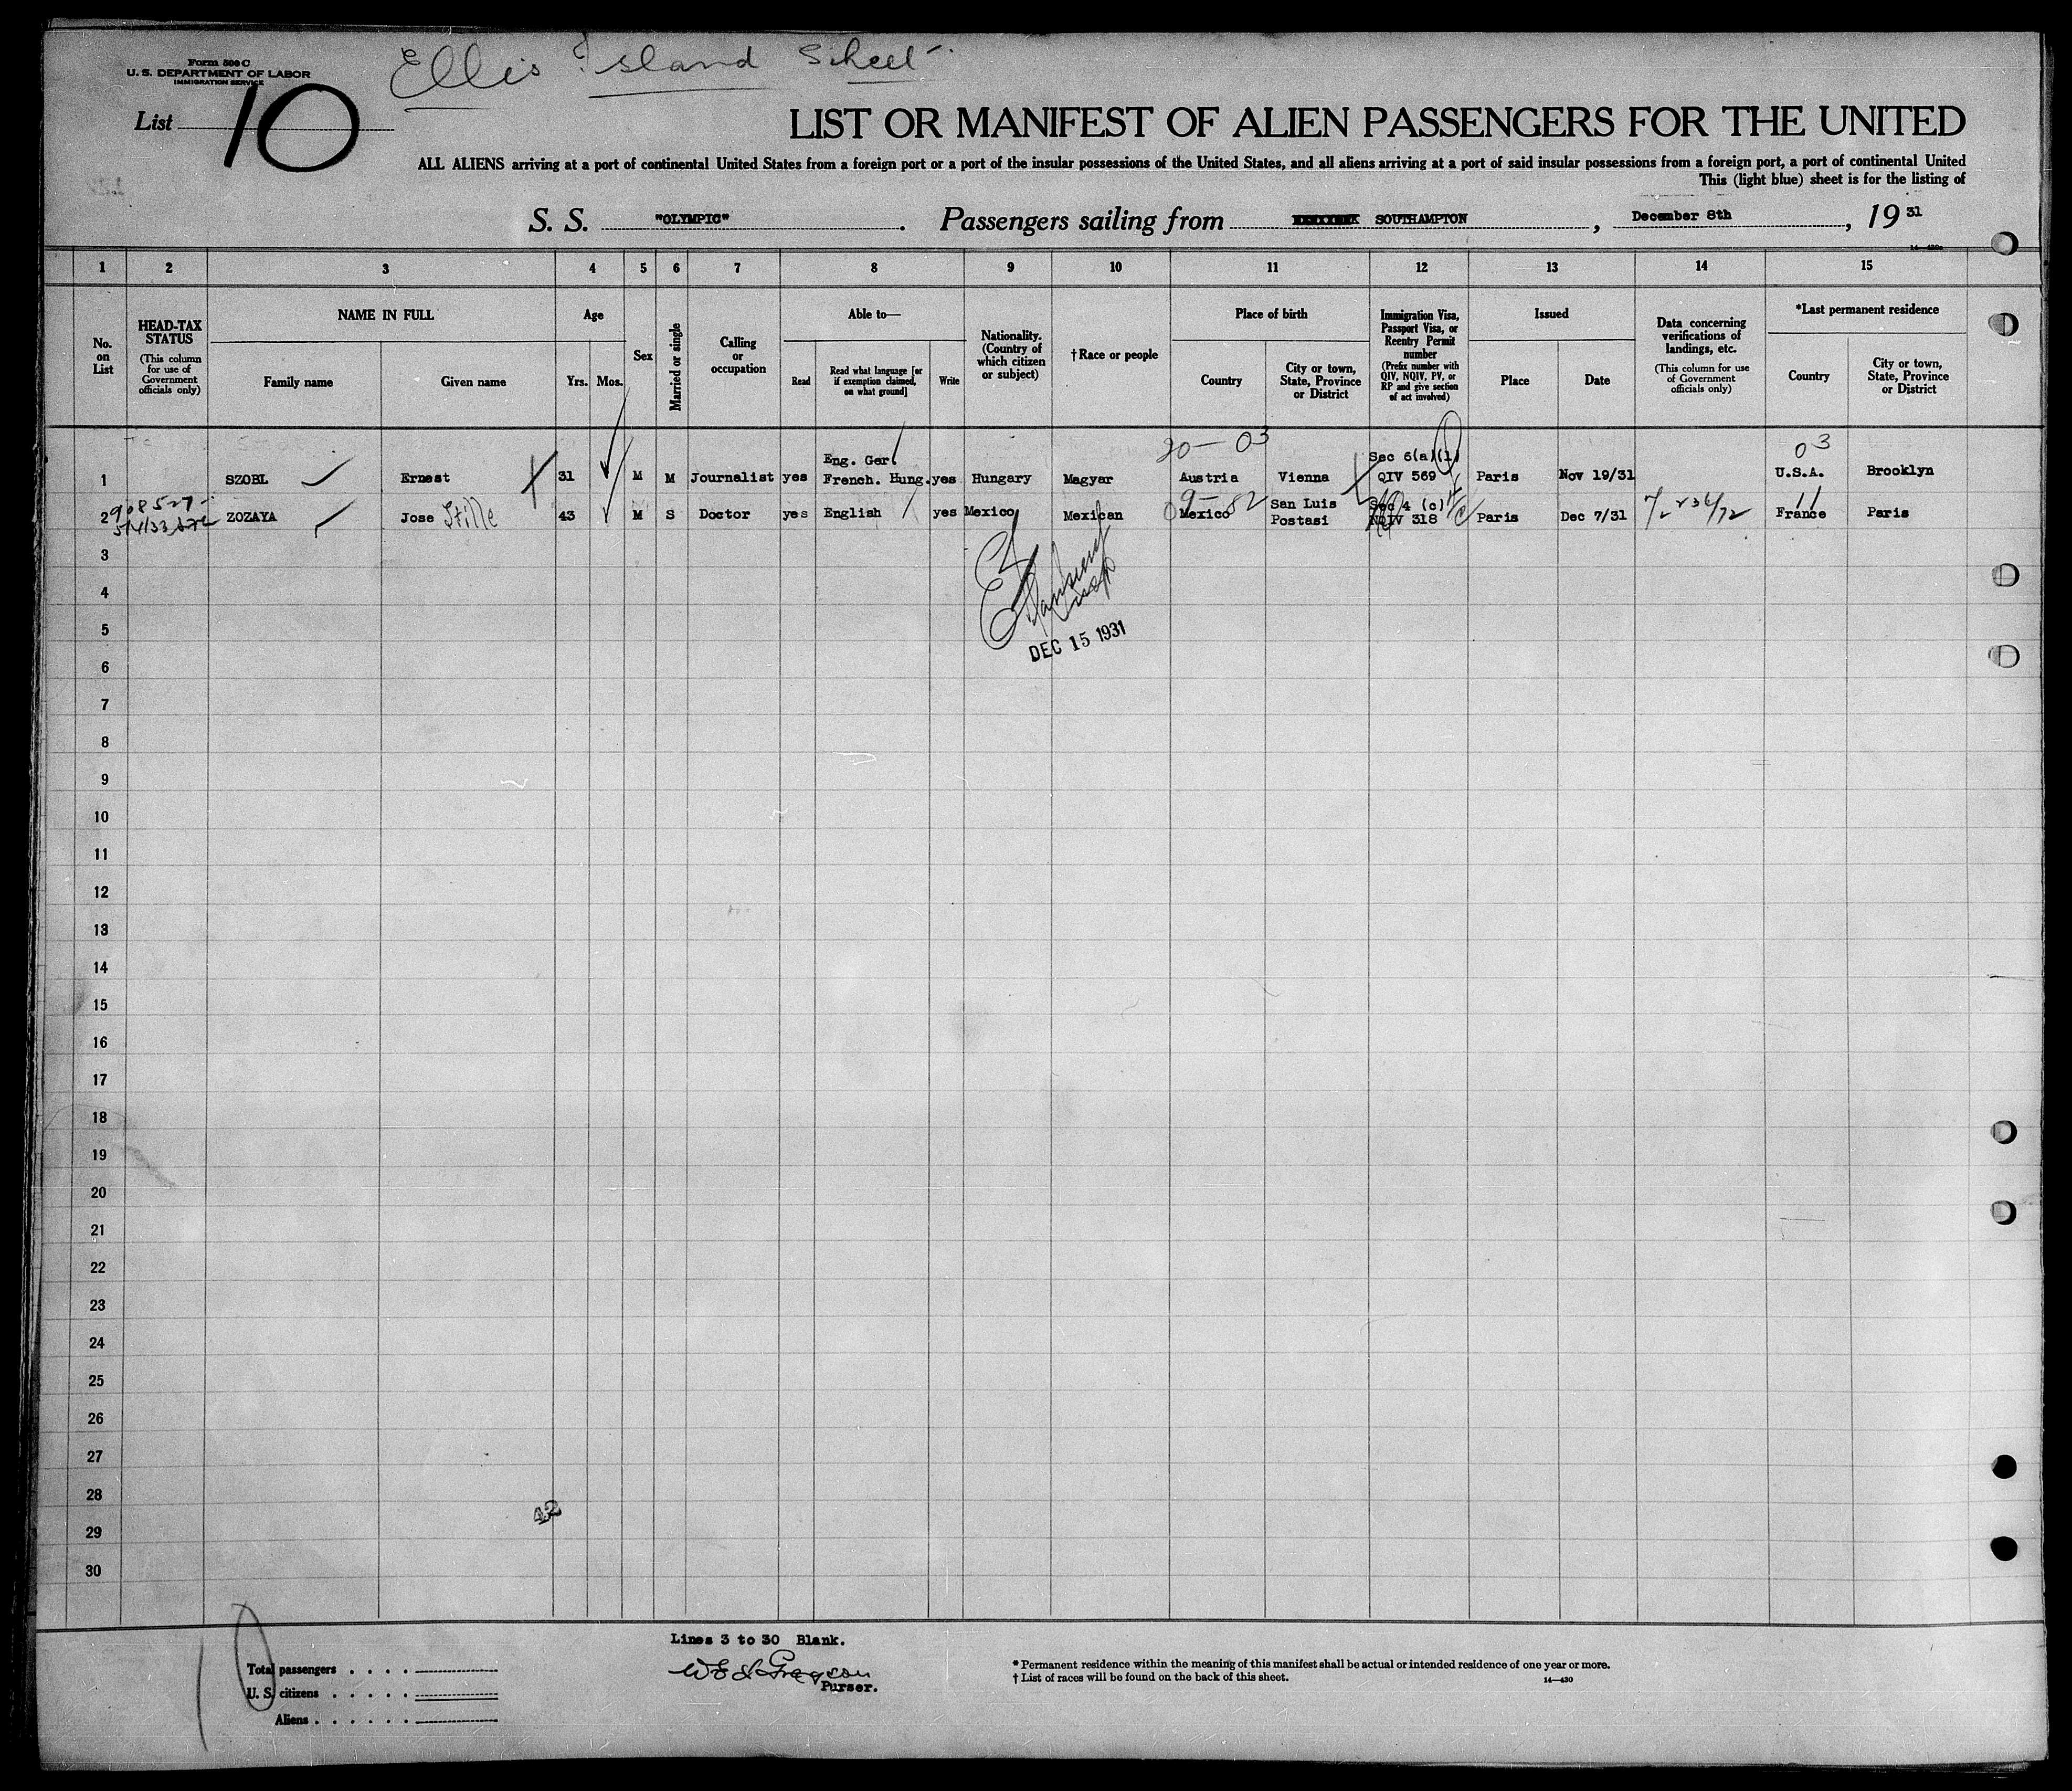 Form 500 C
U. S. DEPARTMENT OF LABOR
IMMIGRATION SERVICE
Ellis Island Sheet
List 10
LIST OR MANIFEST OF ALIEN PASSENGERS FOR THE UNITED
ALL ALIENS arriving at a port of continental United States from a foreign port or a port of the insular possessions of the United States, and all aliens arriving at a port of said insular possessions from a foreign port, a port of continental United
This (light blue) sheet is for the listing of
S. S. "OLYMPIC". Passengers sailing from SOUTHAMPTON, December 8th, 19 31
14—430a
1 2 3 4 5 6 7 8 9 10 11 12 13 14 15
No. on List
HEAD-TAX STATUS (This column for use of Government officials only)
NAME IN FULL
Family name
Given name
Age
Yrs. Mos.
Sex
Married or single
Calling or occupation
Able to—
Read
Read what language [or if exemption claimed, on what ground]
Write
Nationality. (Country of which citizen or subject)
†Race or people
Place of birth
Country
City or town, State, Province or District
Immigration Visa, Passport Visa, or Reentry Permit number (Prefix number with QIV, NQIV, PV, or RP and give section of act involved)
Issued
Place
Date
Data concerning verifications of landings, etc. (This column for use of Government officials only)
*Last permanent residence
Country
City or town, State, Province or District
20— 03
03
Eng. Ger. Sec 6(a)(1)
1 SZOBL Ernest 31 M M Journalist yes French. Hung. yes Hungary Magyar Austria Vienna QIV 569 Paris Nov 19/31 U.S.A. Brooklyn
908527 9— 82 San Luis Sec 4 (c) 11
2 ZOZAYA Jose 43 M S Doctor yes English yes Mexico Mexican Mexico Postasi NQIV 318 Paris Dec 7/31 France Paris
3
4
5
DEC 15 1931
6
7
8
9
10
11
12
13
14
15
16
17
18
19
20
21
22
23
24
25
26
27
28
42
29
30
10
Lines 3 to 30 Blank.
Total passengers . . . .
U. S. citizens . . . . .
Aliens . . . . . .
Purser.
* Permanent residence within the meaning of this manifest shall be actual or intended residence of one year or more.
† List of races will be found on the back of this sheet.
14—430